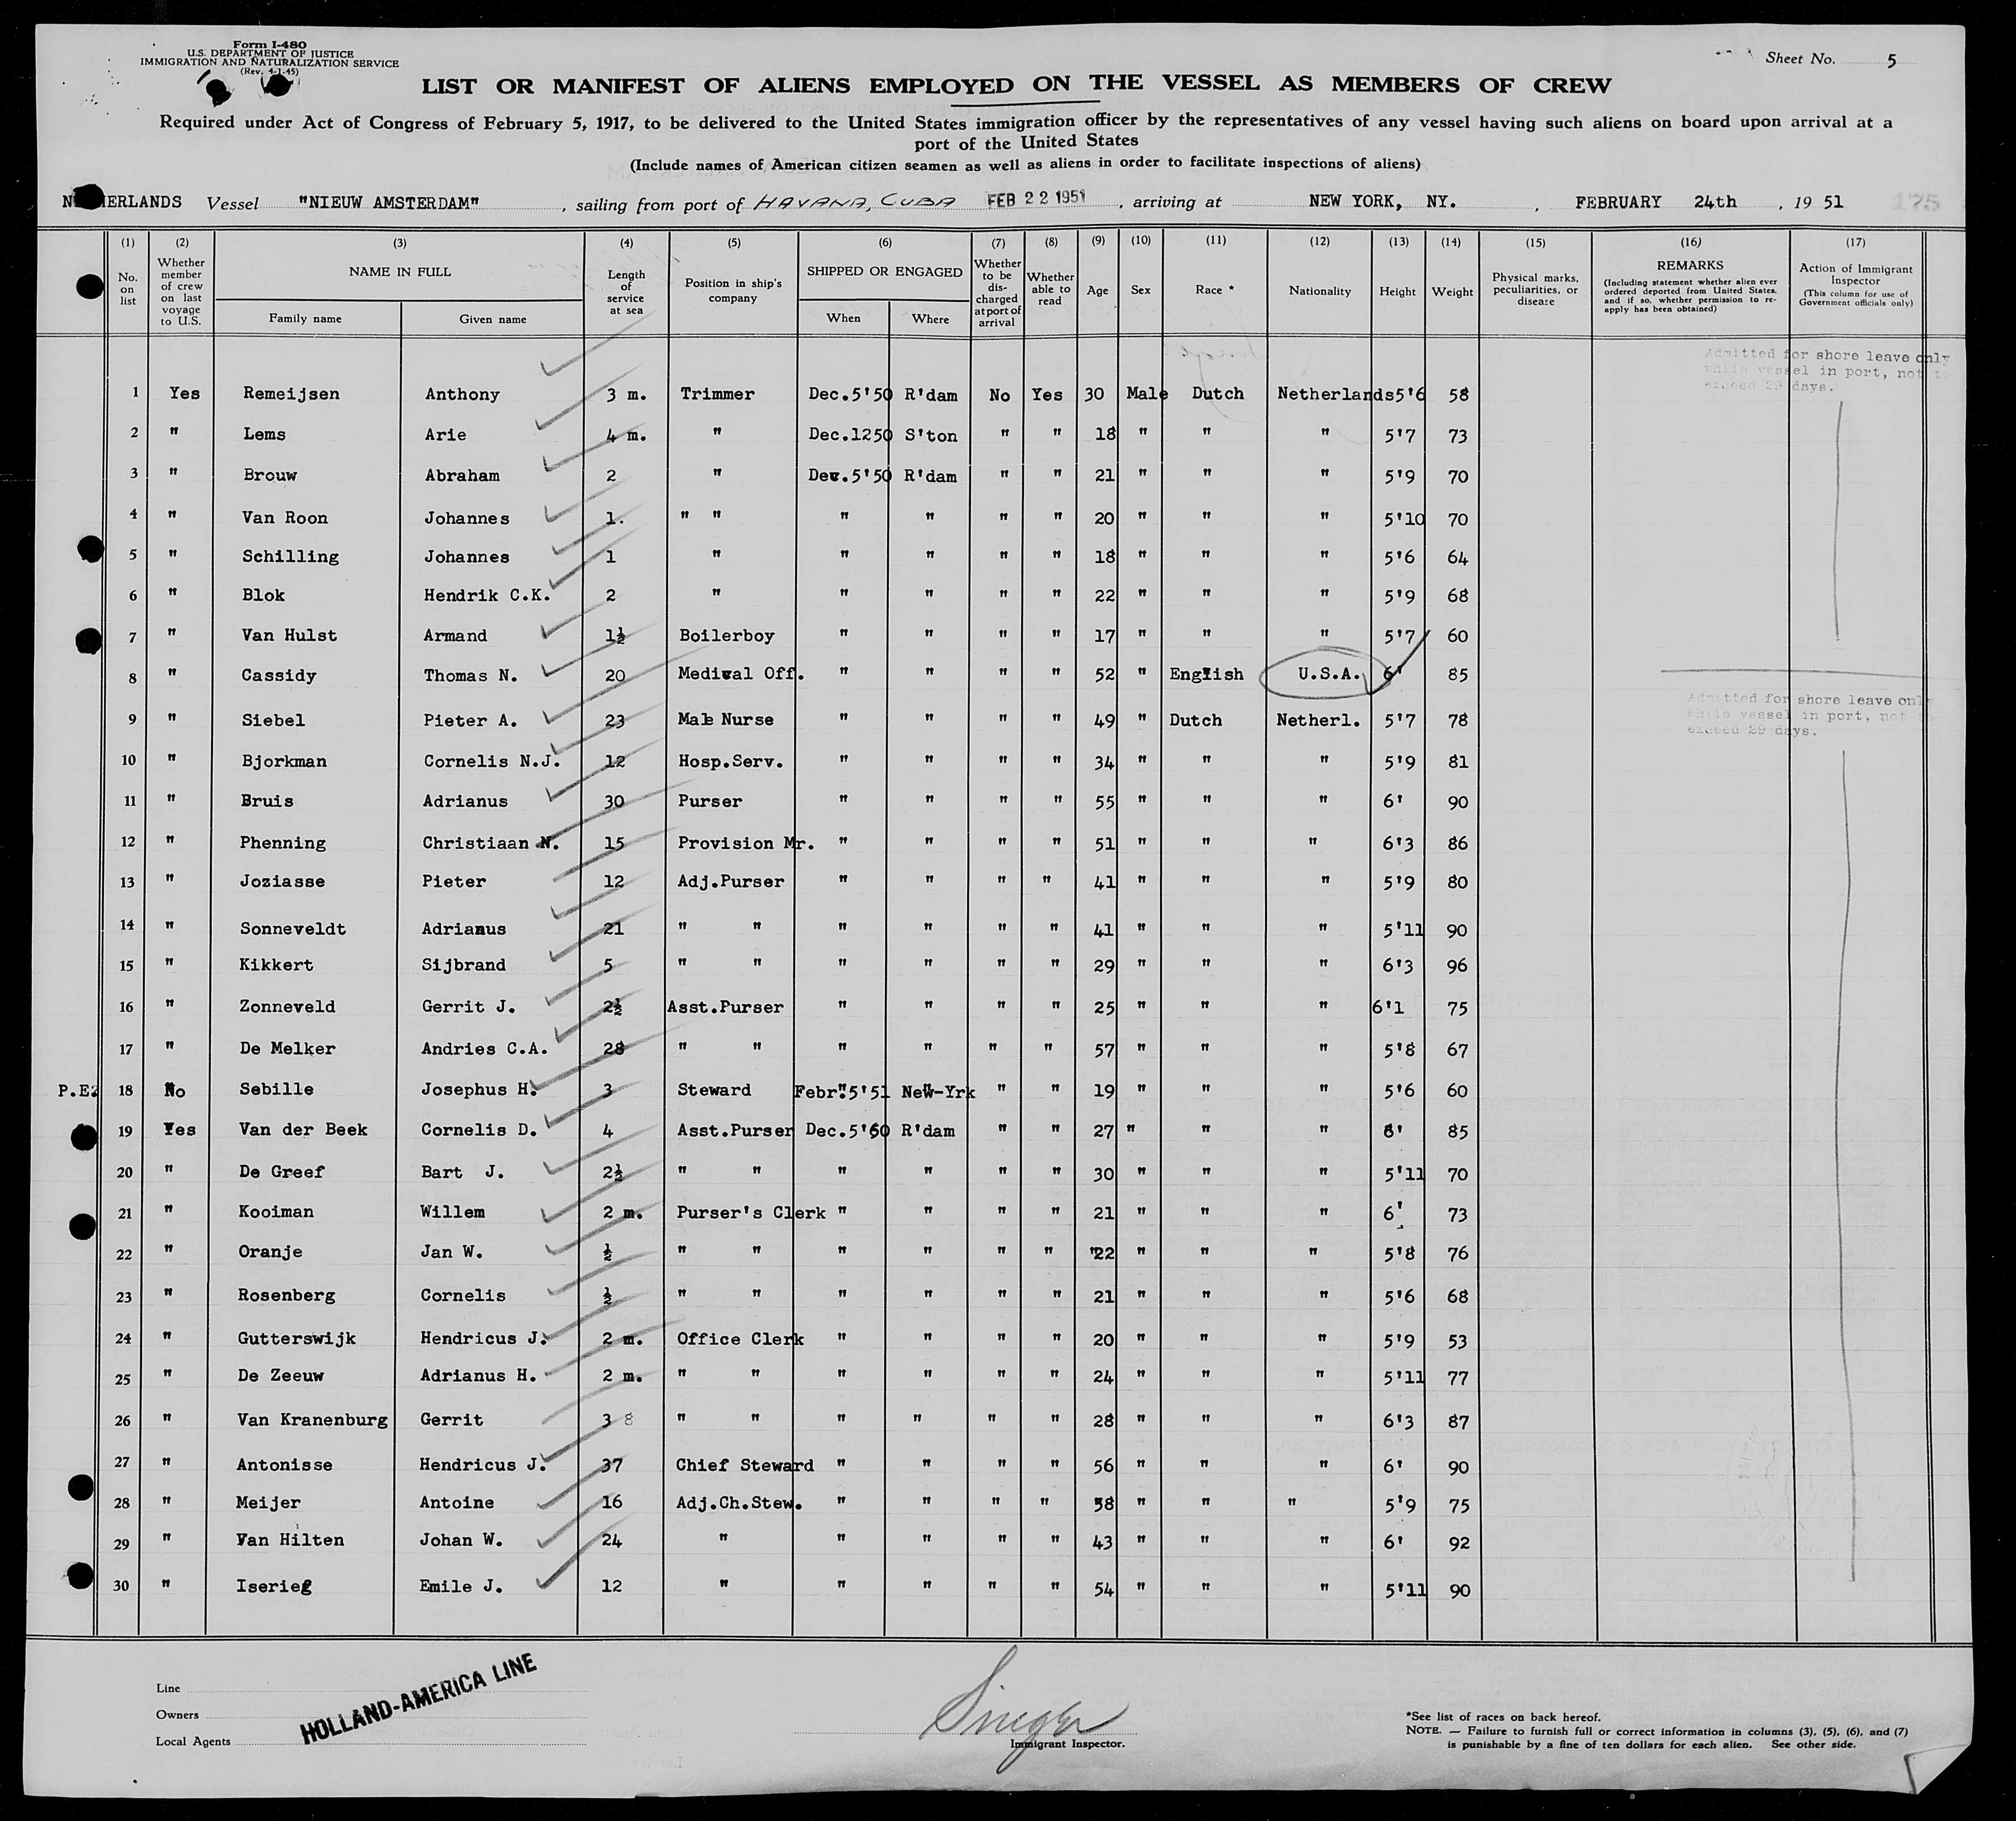 Form I-480
U.S. DEPARTMENT OF JUSTICE
IMMIGRATION AND NATURALIZATION SERVICE
(Rev. 4-1-45)
Sheet No. 5
LIST OR MANIFEST OF ALIENS EMPLOYED ON THE VESSEL AS MEMBERS OF CREW
Required under Act of Congress of February 5, 1917, to be delivered to the United States immigration officer by the representatives of any vessel having such aliens on board upon arrival at a
port of the United States
(Include names of American citizen seamen as well as aliens in order to facilitate inspections of aliens)
NETHERLANDS Vessel "NIEUW AMSTERDAM", sailing from port of HAVANA, CUBA FEB 22 1951, arriving at NEW YORK, NY., FEBRUARY 24th, 19 51 175
(1) (2) (3) (4) (5) (6) (7) (8) (9) (10) (11) (12) (13) (14) (15) (16) (17)
No. on list
Whether member of crew on last voyage to U.S.
NAME IN FULL
Family name Given name
Length of service at sea
Position in ship's company
SHIPPED OR ENGAGED
When Where
Whether to be discharged at port of arrival
Whether able to read
Age
Sex
Race *
Nationality
Height
Weight
Physical marks, peculiarities, or disease
REMARKS
(Including statement whether alien ever ordered deported from United States, and if so, whether permission to re-apply has been obtained)
Action of Immigrant Inspector
(This column for use of Government officials only)
Admitted for shore leave only
while vessel in port, not to
exceed 29 days.
1 Yes Remeijsen Anthony 3 m. Trimmer Dec.5'50 R'dam No Yes 30 Male Dutch Netherlands 5'6 58
2 " Lems Arie 4 m. " Dec.1250 S'ton " " 18 " " " 5'7 73
3 " Brouw Abraham 2 " Dec.5'50 R'dam " " 21 " " " 5'9 70
4 " Van Roon Johannes 1. " " " " " " 20 " " " 5'10 70
5 " Schilling Johannes 1 " " " " " 18 " " " 5'6 64
6 " Blok Hendrik C.K. 2 " " " " " 22 " " " 5'9 68
7 " Van Hulst Armand 1½ Boilerboy " " " " 17 " " " 5'7 60
8 " Cassidy Thomas N. 20 Medical Off. " " " " 52 " English U.S.A. 6' 85
Admitted for shore leave only
while vessel in port, not to
exceed 29 days.
9 " Siebel Pieter A. 23 Male Nurse " " " " 49 " Dutch Netherl. 5'7 78
10 " Bjorkman Cornelis N.J. 12 Hosp.Serv. " " " " 34 " " " 5'9 81
11 " Bruis Adrianus 30 Purser " " " " 55 " " " 6' 90
12 " Phenning Christiaan N. 15 Provision Mr. " " " " 51 " " " 6'3 86
13 " Joziasse Pieter 12 Adj.Purser " " " " 41 " " " 5'9 80
14 " Sonneveldt Adrianus 21 " " " " " " 41 " " " 5'11 90
15 " Kikkert Sijbrand 5 " " " " " " 29 " " " 6'3 96
16 " Zonneveld Gerrit J. 2½ Asst.Purser " " " " 25 " " " 6'1 75
17 " De Melker Andries C.A. 28 " " " " " " 57 " " " 5'8 67
P.E. 18 No Sebille Josephus H. 3 Steward Febr.5'51 New-Yrk " " 19 " " " 5'6 60
19 Yes Van der Beek Cornelis D. 4 Asst.Purser Dec.5'50 R'dam " " 27 " " " 6' 85
20 " De Greef Bart J. 2½ " " " " " " 30 " " " 5'11 70
21 " Kooiman Willem 2 m. Purser's Clerk " " " " 21 " " " 6' 73
22 " Oranje Jan W. ½ " " " " " " 22 " " " 5'8 76
23 " Rosenberg Cornelis ½ " " " " " " 21 " " " 5'6 68
24 " Gutterswijk Hendricus J. 2 m. Office Clerk " " " " 20 " " " 5'9 53
25 " De Zeeuw Adrianus H. 2 m. " " " " " " 24 " " " 5'11 77
26 " Van Kranenburg Gerrit 3 8 " " " " " " 28 " " " 6'3 87
27 " Antonisse Hendricus J. 37 Chief Steward " " " " 56 " " " 6' 90
28 " Meijer Antoine 16 Adj.Ch.Stew. " " " " 38 " " " 5'9 75
29 " Van Hilten Johan W. 24 " " " " " 43 " " " 6' 92
30 " Iserief Emile J. 12 " " " " " 54 " " " 5'11 90
Line
Owners
Local Agents
HOLLAND-AMERICA LINE
Singer
Immigrant Inspector.
*See list of races on back hereof.
NOTE. — Failure to furnish full or correct information in columns (3), (5), (6), and (7)
is punishable by a fine of ten dollars for each alien. See other side.